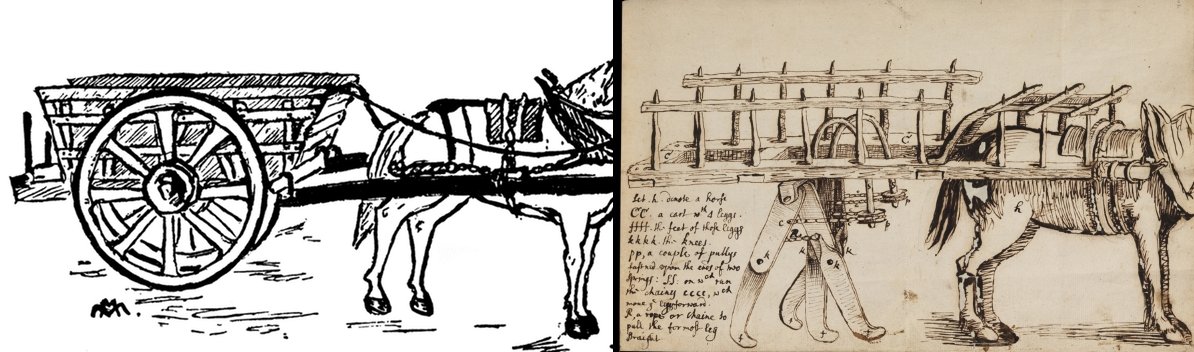 Let h. denote a horse
CC. a cart wth 4 leggs.
ffff. the feet of those leggs
kkkk. the knees.
pp, a couple of pullys
fastned upon the ends of two
springs: SS: on wch run
the chaines cccc, wch
move ye legg forward.
R, a rope or chaine to
pull the formost leg
straight
h
C
C
c
k
k
k
k
p
f
f
f